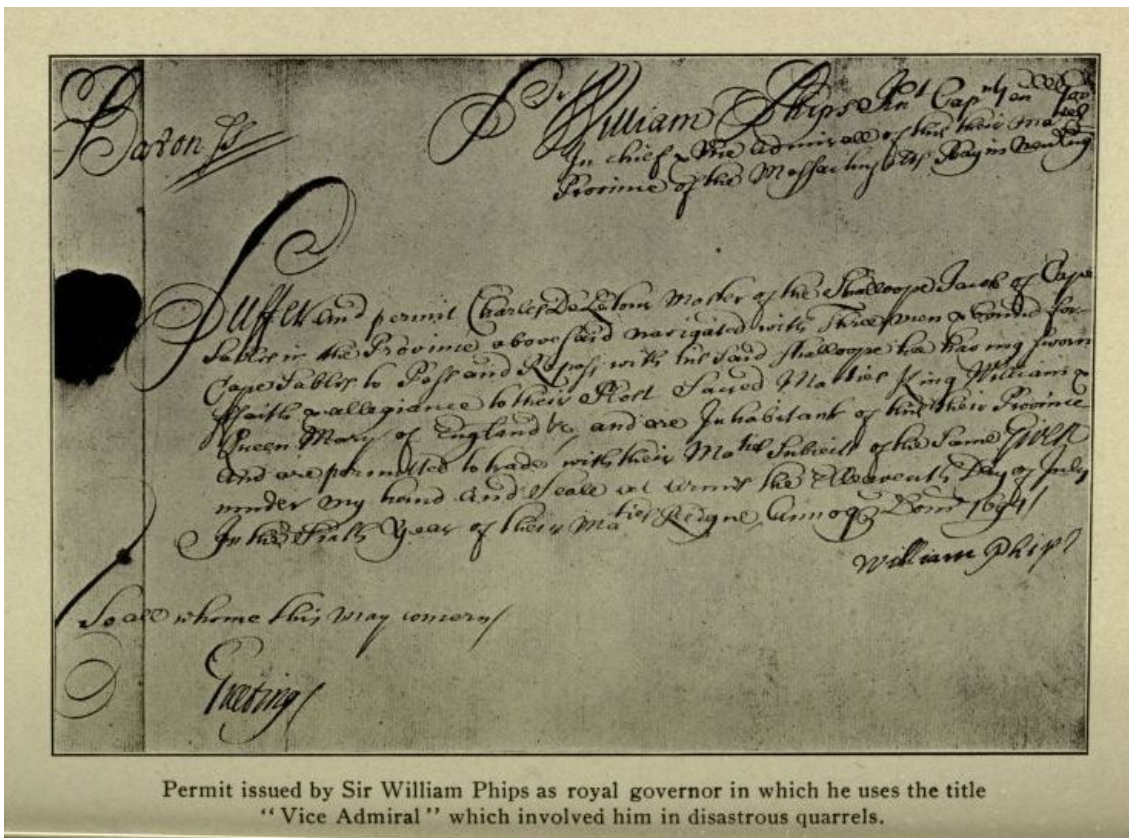 Saxon ss
Sr William Phips Knt Capt Genll Gov
In chief & Vice Admirall of this their Maties
Province of the Massachusetts Bay in New Eng
Suffer and permit Charles De Latour Master of the Shalloope Jacob of Cape
Sables in the Province abovesaid navigated with three men & bound for
Cape Sables to Pass and Repass with his said shalloope he having sworn
ffaith & allegiance to their Most Sacred Maties King William &
Queen Mary of England &c and are Inhabitants of this their Province
and are permitted to trade with their Maties Subjects of the Same Given
under my hand and Seale at arms the Eleaventh Day of July
In the Sixth Year of their Maties Reigne, Annoq Domi 1694
William Phips
To all whome this may concern
Greeting
Permit issued by Sir William Phips as royal governor in which he uses the title
"Vice Admiral" which involved him in disastrous quarrels.